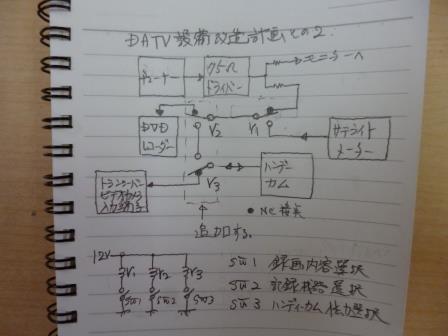 DATV設備改造計画その2.
チューナー
75Ω
ドライバー
モニターへ
DVD
レコーダー
r2
r1
サテライト
チューナー
r3
ハンディー
カム
トランシーバー
ビデオ
入力
● NC接点
追加する.
12V
r1 r2 r3
SW1 SW2 SW3
SW 1 録画内容選択
SW 2 記録機器選択
SW 3 ハンディーカム 入出力選択